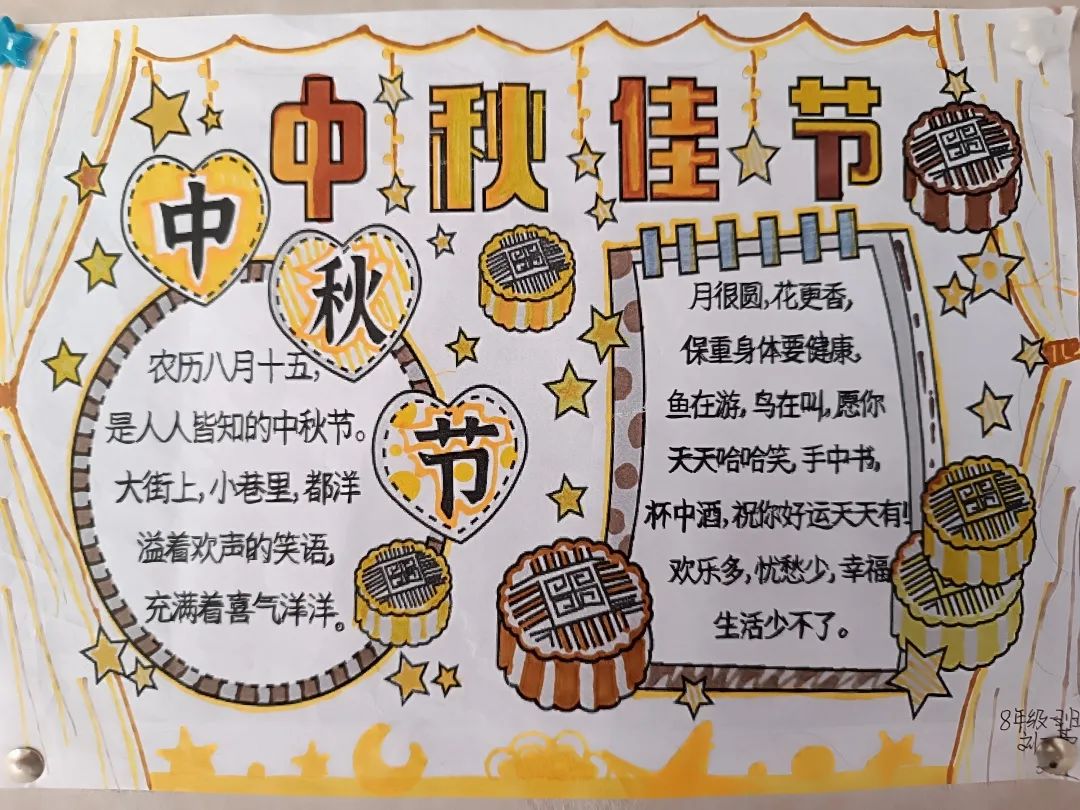 中秋佳节
中
秋
节
农历八月十五,
是人人皆知的中秋节。
大街上,小巷里,都洋
溢着欢声的笑语,
充满着喜气洋洋。
月很圆,花更香,
保重身体要健康,
鱼在游,鸟在叫,愿你
天天哈哈笑,手中书,
杯中酒,祝你好运天天有!
欢乐多,忧愁少,幸福
生活少不了。
8年级一班
刘